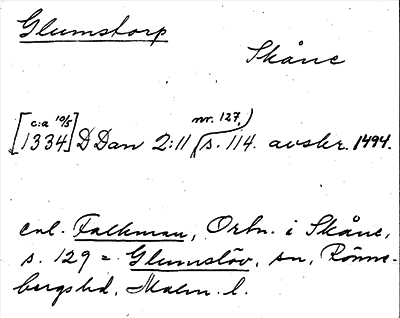 Glumstorp
Skåne
[c:a 10/5 1334] DDan 2:11 (s. 114. nr. 127,) avskr. 1494.
enl. Falkman, Ortn. i Skåne,
s. 129 = Glumslöv, sn, Rönne-
bergs hd, Malm. l.